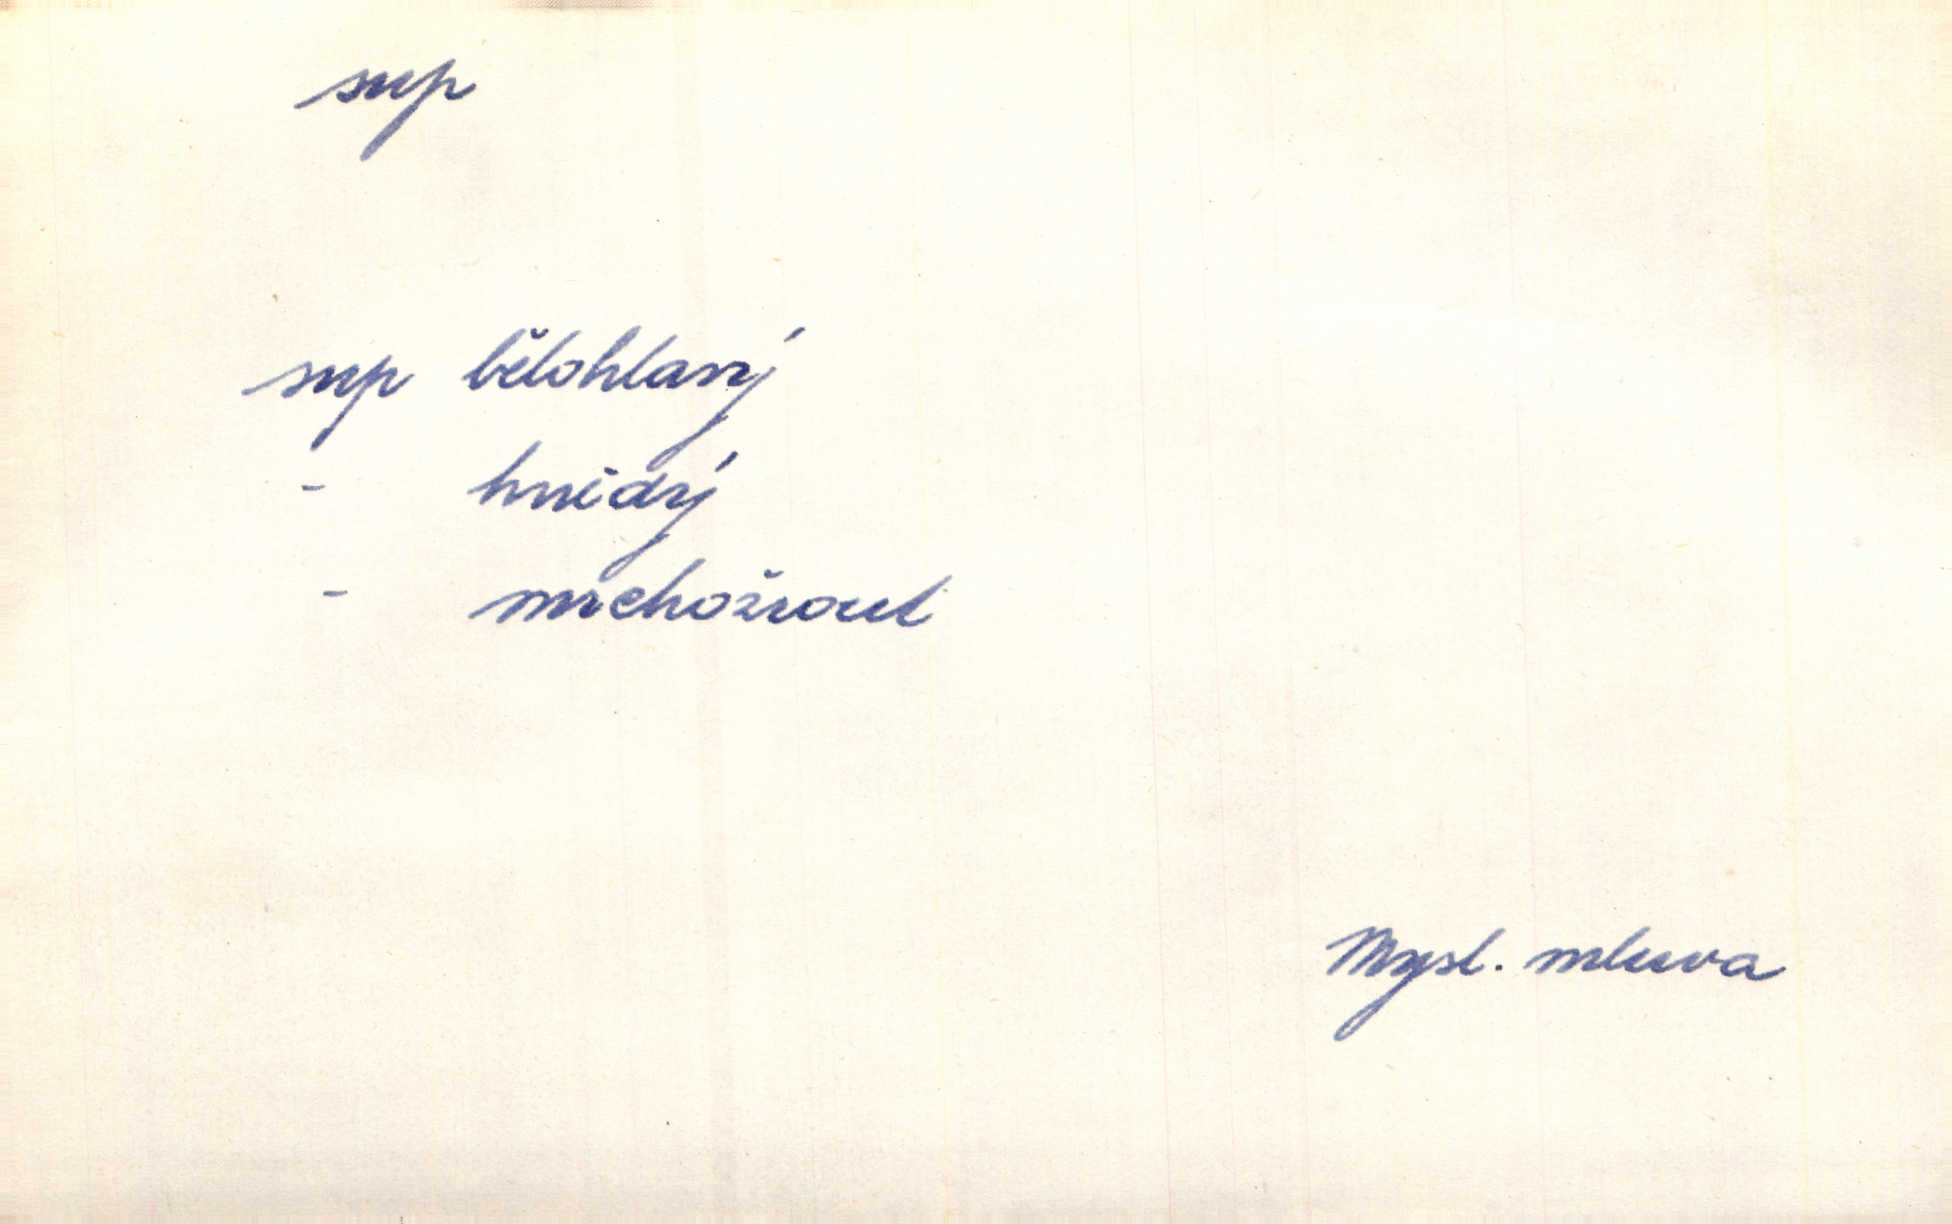 sup
sup bělohlavý
- hnědý
- mrchožrout
Mysl. mluva